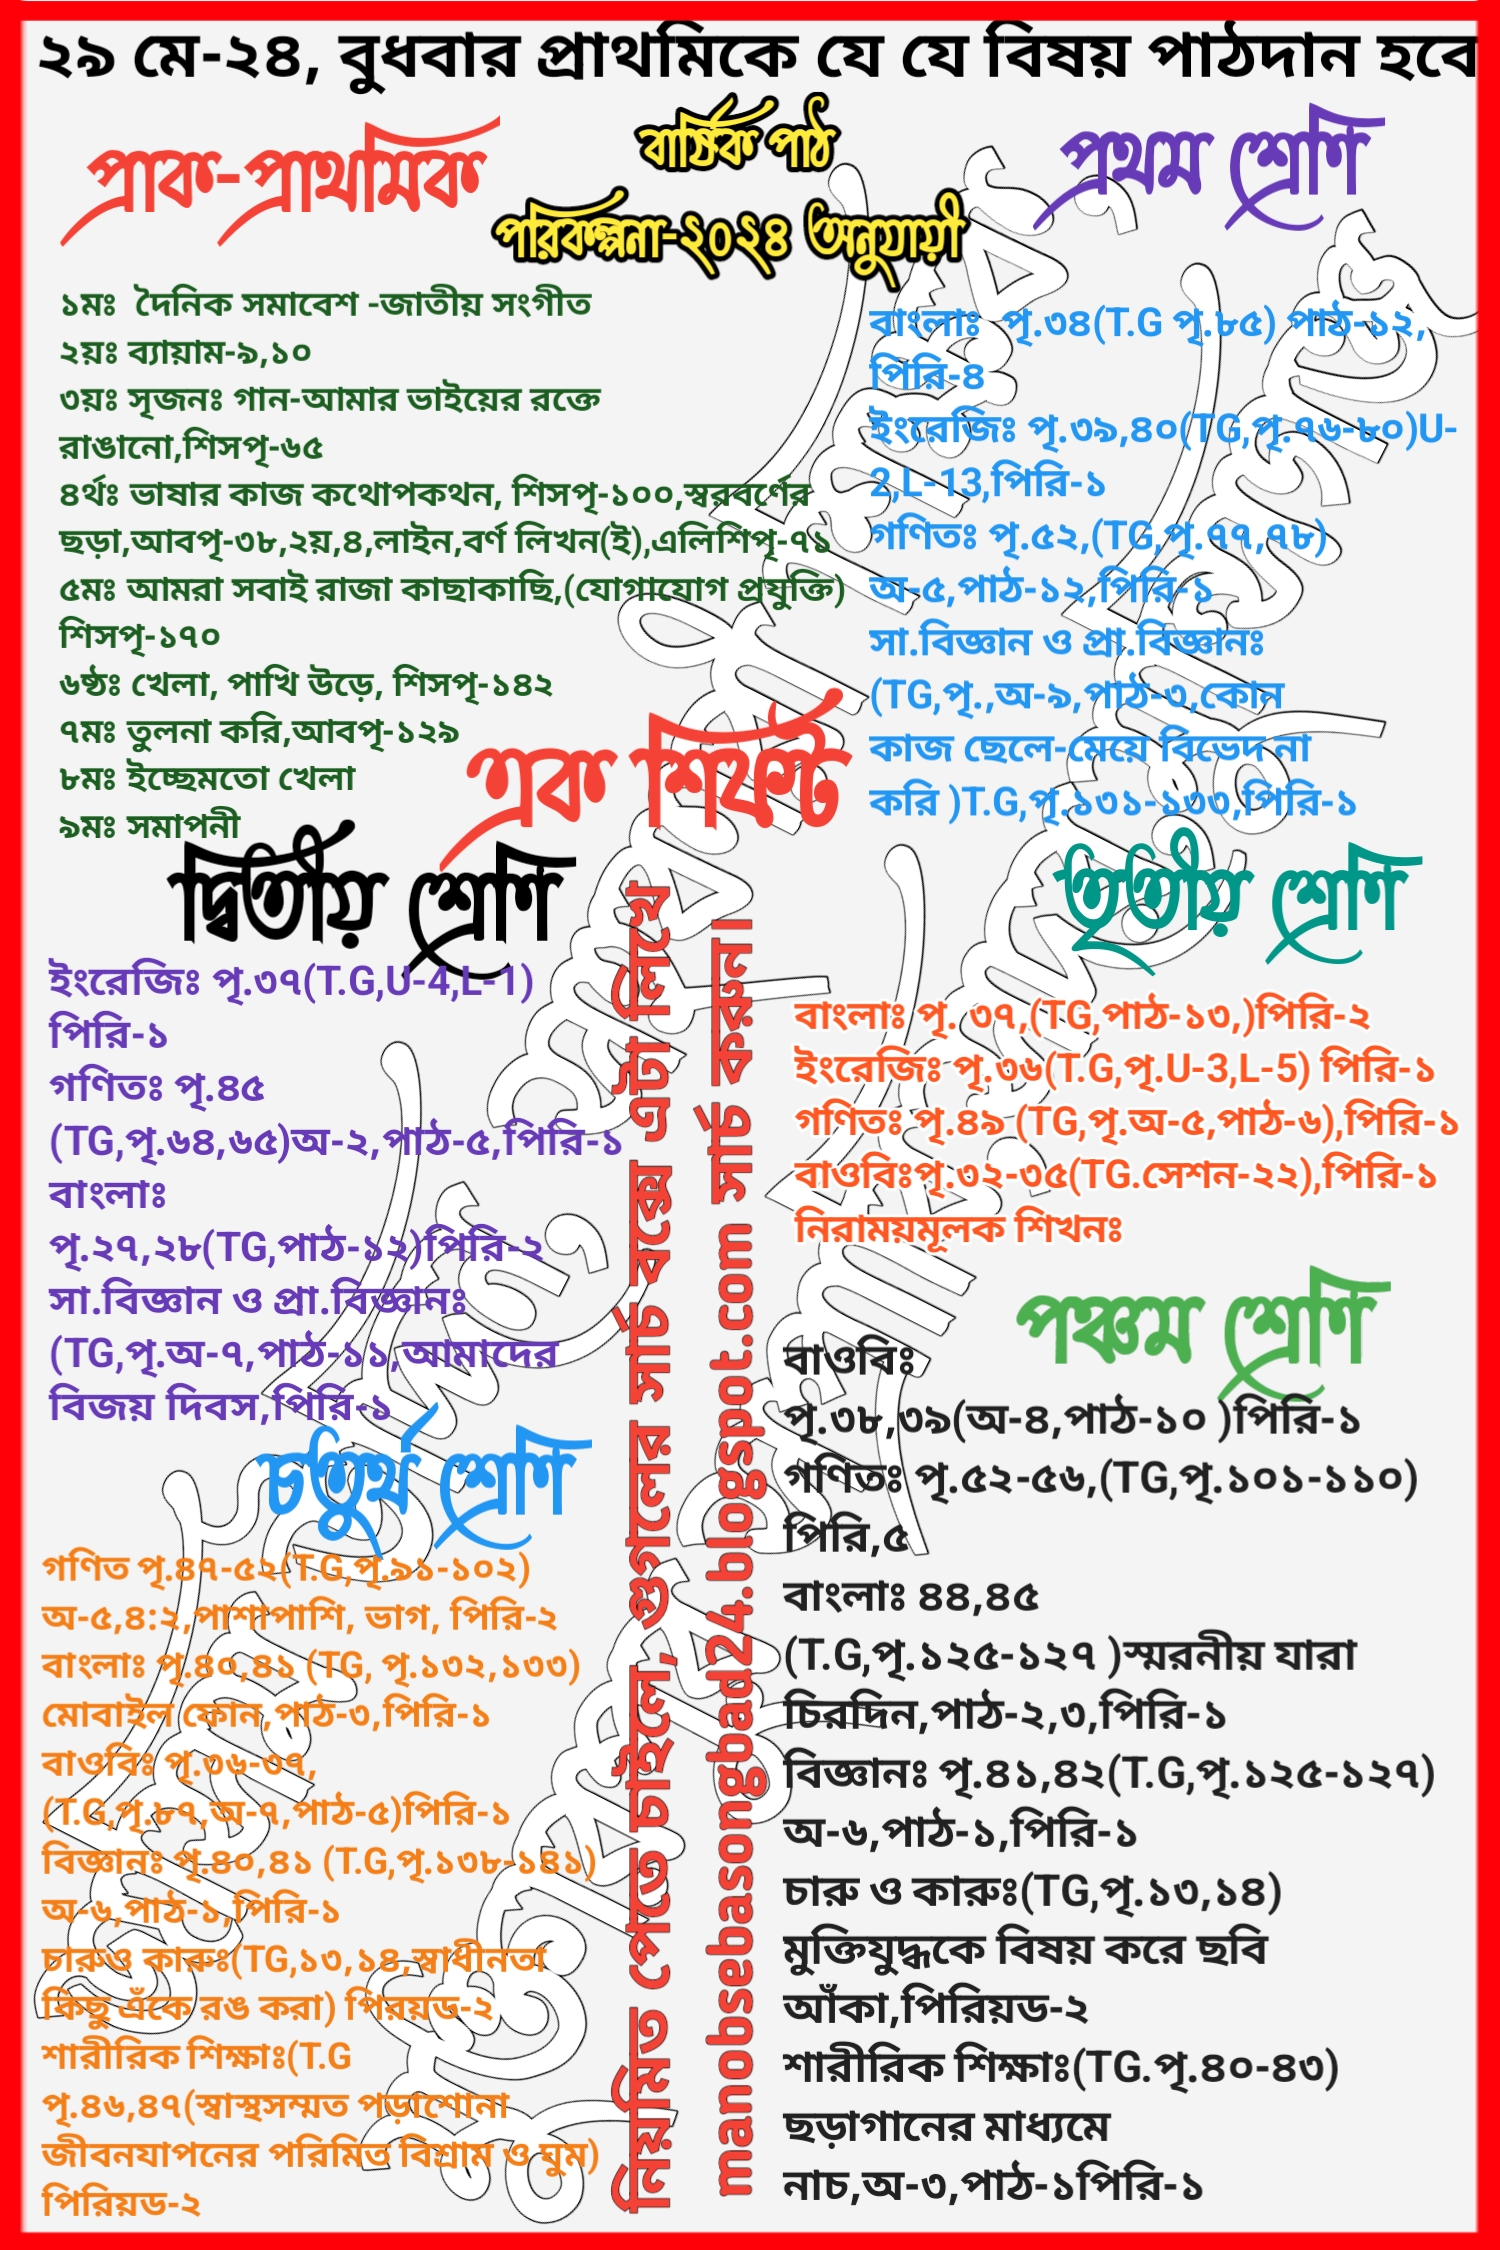 ২৯ মে-২৪, বুধবার প্রাথমিকে যে যে বিষয় পাঠদান হবে
বার্ষিক পাঠ
পরিকল্পনা-২০২৪ অনুযায়ী
প্রাক-প্রাথমিক
১মঃ দৈনিক সমাবেশ -জাতীয় সংগীত
২য়ঃ ব্যায়াম-৯,১০
৩য়ঃ সৃজনঃ গান-আমার ভাইয়ের রক্তে
রাঙানো,শিসপৃ-৬৫
৪র্থঃ ভাষার কাজ কথোপকথন, শিসপৃ-১০০,স্বরবর্ণের
ছড়া,আবপৃ-৩৮,২য়,৪,লাইন,বর্ণ লিখন(ই),এলিশিপৃ-৭১
৫মঃ আমরা সবাই রাজা কাছাকাছি,(যোগাযোগ প্রযুক্তি)
শিসপৃ-১৭০
৬ষ্ঠঃ খেলা, পাখি উড়ে, শিসপৃ-১৪২
৭মঃ তুলনা করি,আবপৃ-১২৯
৮মঃ ইচ্ছেমতো খেলা
৯মঃ সমাপনী
প্রথম শ্রেণি
বাংলাঃ পৃ.৩৪(T.G পৃ.৮৫) পাঠ-১২,
পিরি-৪
ইংরেজিঃ পৃ.৩৯,৪০(TG,পৃ.৭৬-৮০)U-
2,L-13,পিরি-১
গণিতঃ পৃ.৫২,(TG,পৃ.৭৭,৭৮)
অ-৫,পাঠ-১২,পিরি-১
সা.বিজ্ঞান ও প্রা.বিজ্ঞানঃ
(TG,পৃ.,অ-৯,পাঠ-৩,কোন
কাজ ছেলে-মেয়ে বিভেদ না
করি )T.G,পৃ.১৩১-১৩৩,পিরি-১
এক শিফট
দ্বিতীয় শ্রেণি
ইংরেজিঃ পৃ.৩৭(T.G,U-4,L-1)
পিরি-১
গণিতঃ পৃ.৪৫
(TG,পৃ.৬৪,৬৫)অ-২,পাঠ-৫,পিরি-১
বাংলাঃ
পৃ.২৭,২৮(TG,পাঠ-১২)পিরি-২
সা.বিজ্ঞান ও প্রা.বিজ্ঞানঃ
(TG,পৃ.অ-৭,পাঠ-১১,আমাদের
বিজয় দিবস,পিরি-১
তৃতীয় শ্রেণি
বাংলাঃ পৃ. ৩৭,(TG,পাঠ-১৩,)পিরি-২
ইংরেজিঃ পৃ.৩৬(T.G,পৃ.U-3,L-5) পিরি-১
গণিতঃ পৃ.৪৯ (TG,পৃ.অ-৫,পাঠ-৬),পিরি-১
বাওবিঃপৃ.৩২-৩৫(TG.সেশন-২২),পিরি-১
নিরাময়মূলক শিখনঃ
চতুর্থ শ্রেণি
গণিত পৃ.৪৭-৫২(T.G,পৃ.৯১-১০২)
অ-৫,৪:২,পাশাপাশি, ভাগ, পিরি-২
বাংলাঃ পৃ.৪০,৪১ (TG, পৃ.১৩২,১৩৩)
মোবাইল ফোন,পাঠ-৩,পিরি-১
বাওবিঃ পৃ.৩৬-৩৭,
(T.G,পৃ.৮৭,অ-৭,পাঠ-৫)পিরি-১
বিজ্ঞানঃ পৃ.৪০,৪১ (T.G,পৃ.১৩৮-১৪১)
অ-৬,পাঠ-১,পিরি-১
চারুও কারুঃ(TG,১৩,১৪,স্বাধীনতা
কিছু এঁকে রঙ করা) পিরয়ড-২
শারীরিক শিক্ষাঃ(T.G
পৃ.৪৬,৪৭(স্বাস্থসম্মত পড়াশোনা
জীবনযাপনের পরিমিত বিশ্রাম ও ঘুম)
পিরিয়ড-২
পঞ্চম শ্রেণি
বাওবিঃ
পৃ.৩৮,৩৯(অ-৪,পাঠ-১০ )পিরি-১
গণিতঃ পৃ.৫২-৫৬,(TG,পৃ.১০১-১১০)
পিরি,৫
বাংলাঃ ৪৪,৪৫
(T.G,পৃ.১২৫-১২৭ )স্মরনীয় যারা
চিরদিন,পাঠ-২,৩,পিরি-১
বিজ্ঞানঃ পৃ.৪১,৪২(T.G,পৃ.১২৫-১২৭)
অ-৬,পাঠ-১,পিরি-১
চারু ও কারুঃ(TG,পৃ.১৩,১৪)
মুক্তিযুদ্ধকে বিষয় করে ছবি
আঁকা,পিরিয়ড-২
শারীরিক শিক্ষাঃ(TG.পৃ.৪০-৪৩)
ছড়াগানের মাধ্যমে
নাচ,অ-৩,পাঠ-১পিরি-১
নিয়মিত পেতে চাইলে,গুগলের সার্চ বক্সে এটা লিখে
manobsebasongbad24.blogspot.com সার্চ করুন।